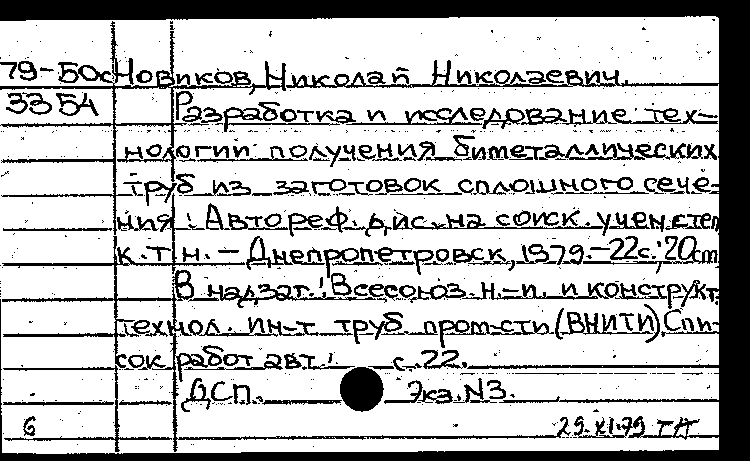 79-50с Новиков, Николай Николаевич.
3354 Разработка и исследование тех-
нологии получения биметаллических
труб из заготовок сплошного сече-
ния: Автореф. дис. на соиск. учен. степ
к.т.н. - Днепропетровск, 1979. - 22с.; 20cm
В надзаг.: Всесоюз. н.-п. и конструкт.
технол. ин-т труб. пром-сти (ВНИТИ). Спи-
сок работ авт.: с.22.
ДСП. Экз. N3.
6 29.XI.79 ТА